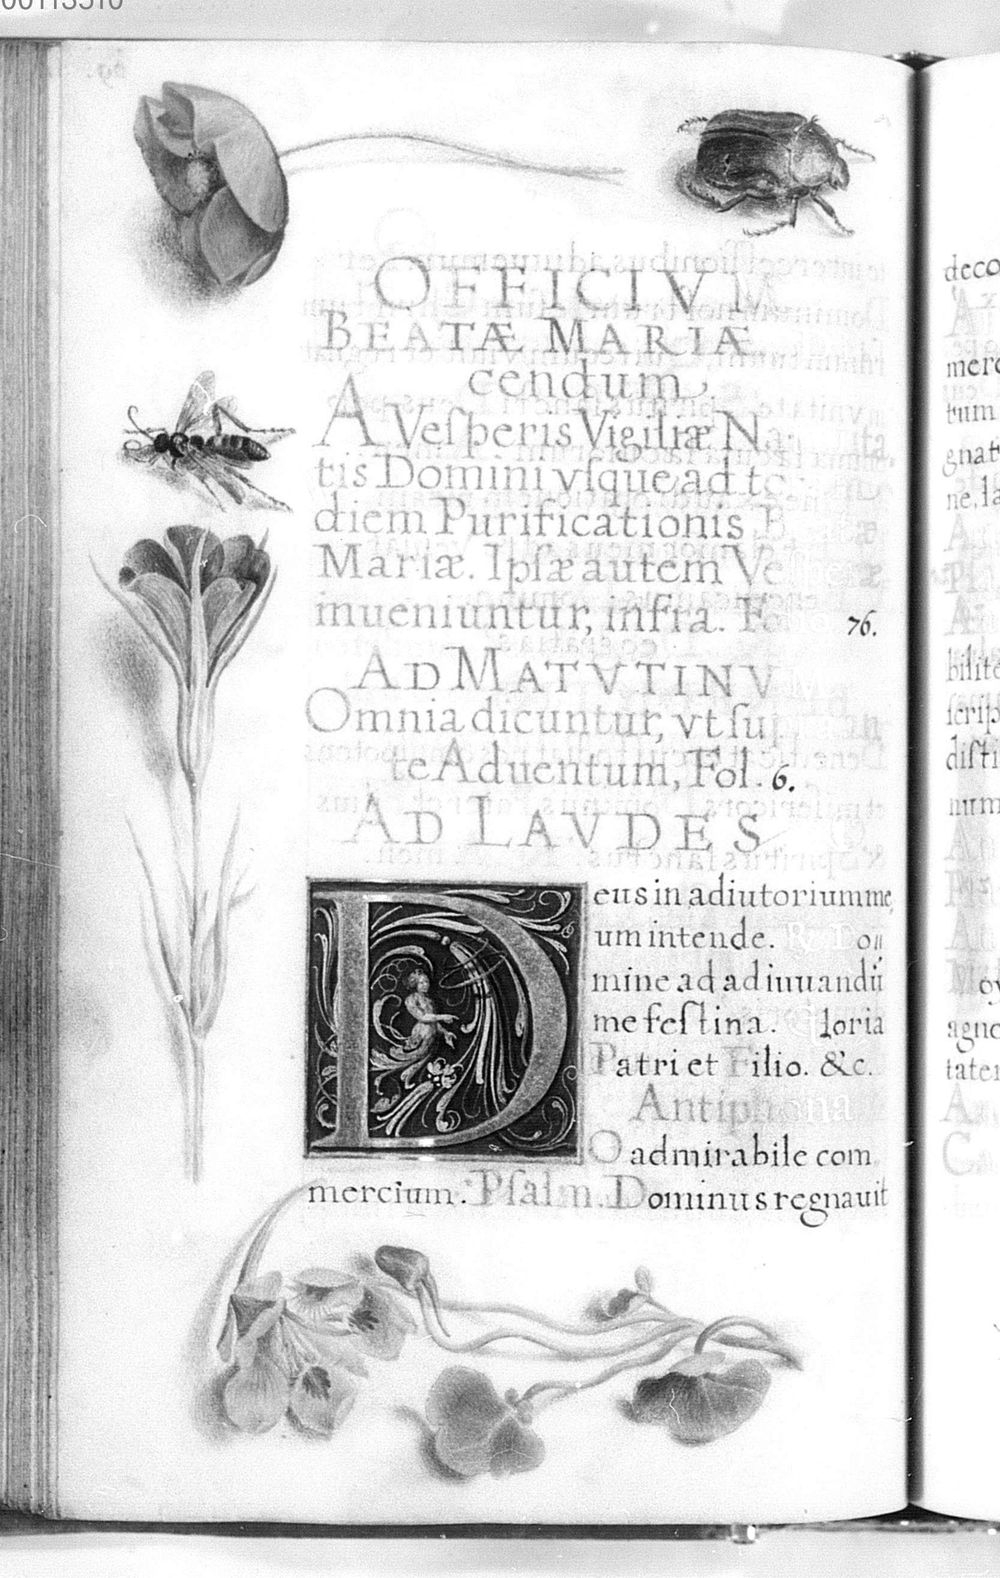 00113510
OFFICIVM
BEATÆ MARIÆ
cendum.
A Veſperis Vigiliæ Na
tis Domini vſque ad to
diem Purificationis B
Mariæ. Ipſæ autem Ve
inueniuntur, infra. Fo 76.
AD MATVTINV
Omnia dicuntur, vt ſup
te Aduentum, Fol. 6.
AD LAVDES
Deus in adiutorium me,
um intende. ℟ Do
mine ad adiuuandū
me feſtina. loria
Patri et Filio. &c.
Antiphona
O admirabile com
mercium. Pſalm. Dominus regnauit
deco
merc
tum
gnat
ne, la
bilite
ſcrip
diſti
num
agno
tater